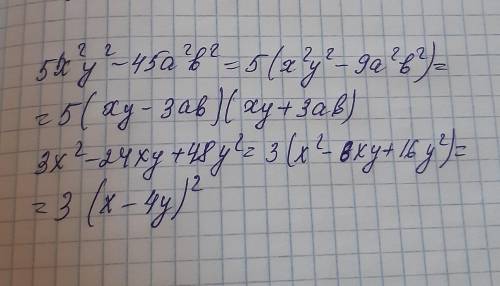 5x²y² - 45a²b² = 5(x²y² - 9a²b²) =
= 5(xy - 3ab)(xy + 3ab)
3x² - 24xy + 48y² = 3(x² - 8xy + 16y²) =
= 3(x - 4y)²